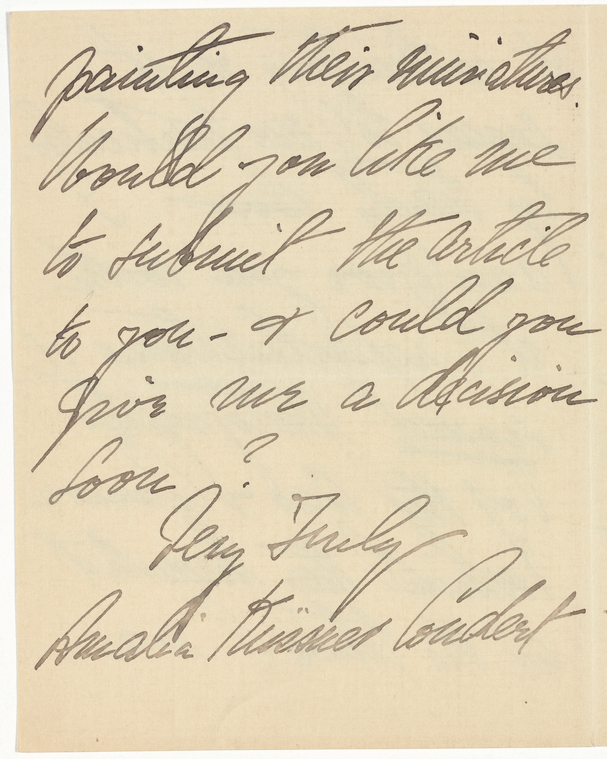 painting their miniatures.
Would you like me
to submit the article
to you - & could you
give me a decision
soon?
Very Truly
Amalia Küssner Coudert